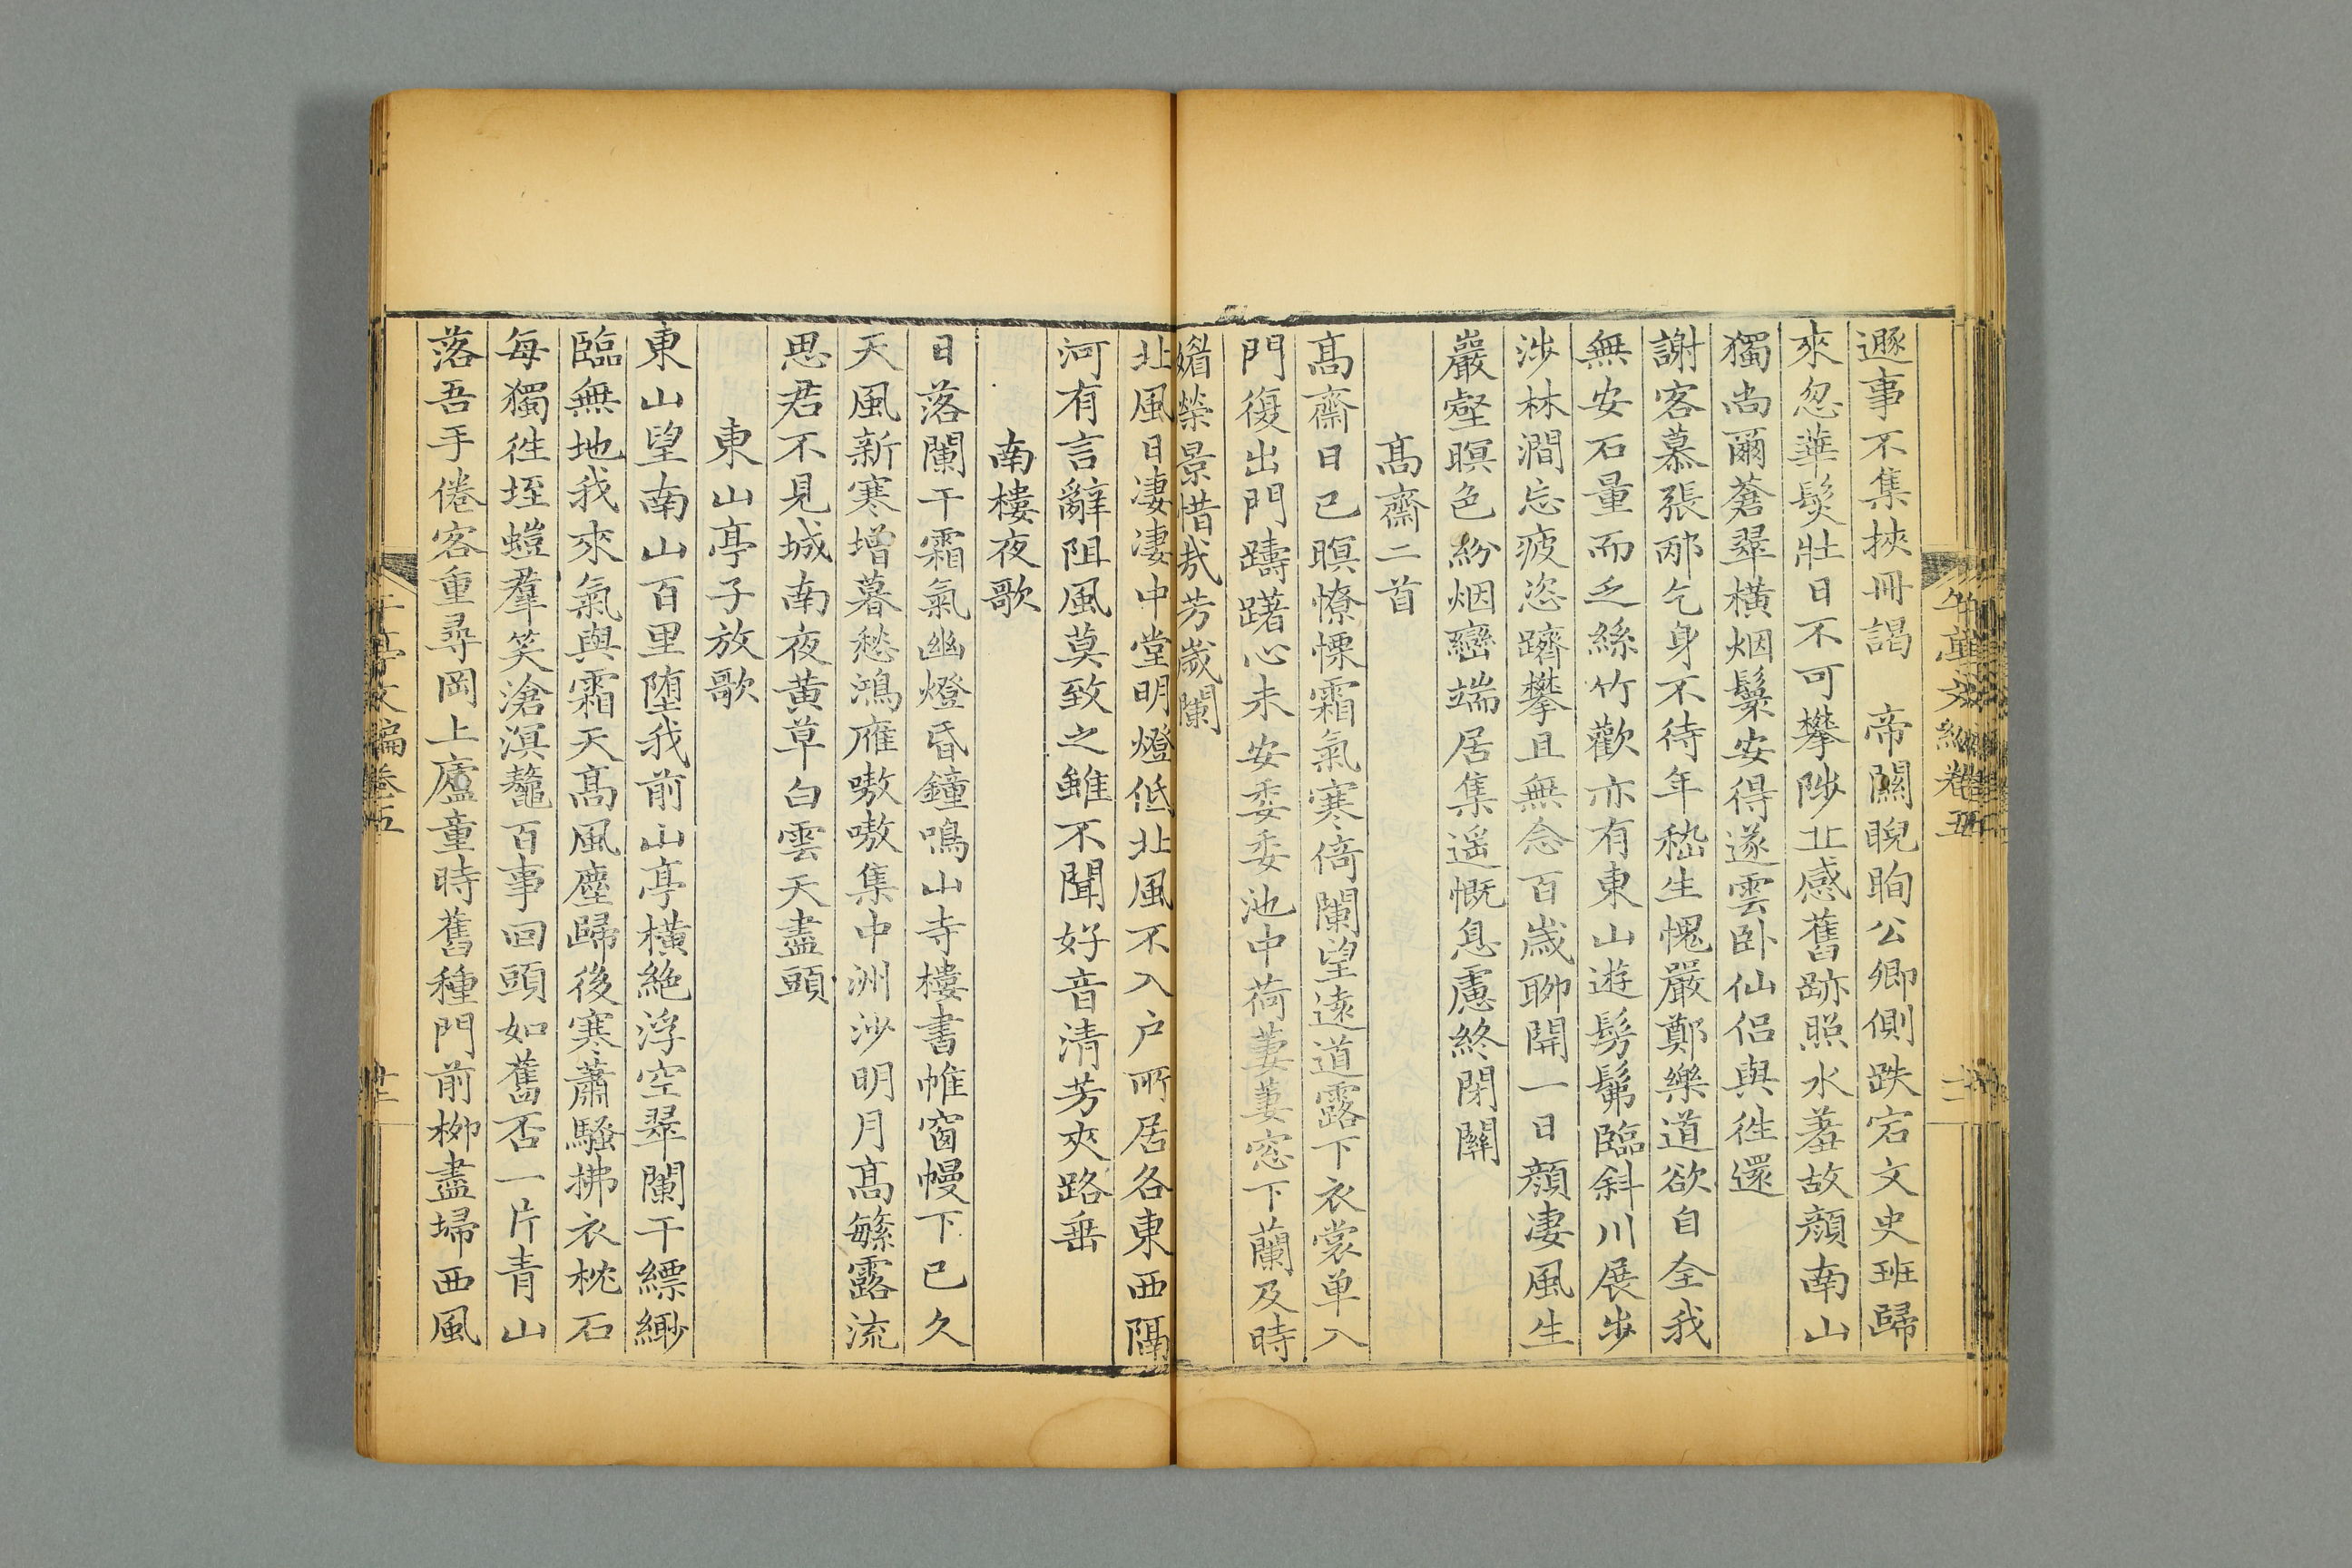 遯事不集挾冊謁　帝闕睨眴公卿側跌宕文史班歸
來忽華髮壯日不可攀陟丘感舊跡照水羞故顏南山
獨尚爾蒼翠橫烟鬟安得遂雲卧仙侶與徃還
謝客慕張邴乞身不待年嵇生愧嚴鄭樂道欲自全我
無安石量而乏絲竹歡亦有東山遊髣髴臨斜川展步
涉林澗忘疲恣躋攀且無念百歲聊開一日顏淒風生
巖壑暝色紛烟巒端居集遥慨息慮終閉關
髙齋二首
髙齋日已暝憭慄霜氣寒倚闌望遠道露下衣裳单入
門復出門躊躇心未安委委池中荷萋萋窓下蘭及時
媚榮景惜哉芳歲闌
北風日淒淒中堂明燈低北風不入户所居各東西隔
河有言辭阻風莫致之雖不聞好音清芳夾路垂
南樓夜歌
日落闌干霜氣幽燈昏鐘鳴山寺樓書帷窗幔下已久
天風新寒增暮愁鴻雁嗷嗷集中洲沙明月髙繁露流
思君不見城南夜黄草白雲天盡頭
東山亭子放歌
東山望南山百里堕我前山亭橫絶浮空翠闌干縹緲
臨無地我來氣與霜天髙風塵歸後寒蕭騷拂衣枕石
每獨徃垤螘羣笑滄溟鼇百事回頭如舊否一片青山
落吾手倦客重尋岡上廬童時舊種門前柳盡埽西風
午亭文編卷五